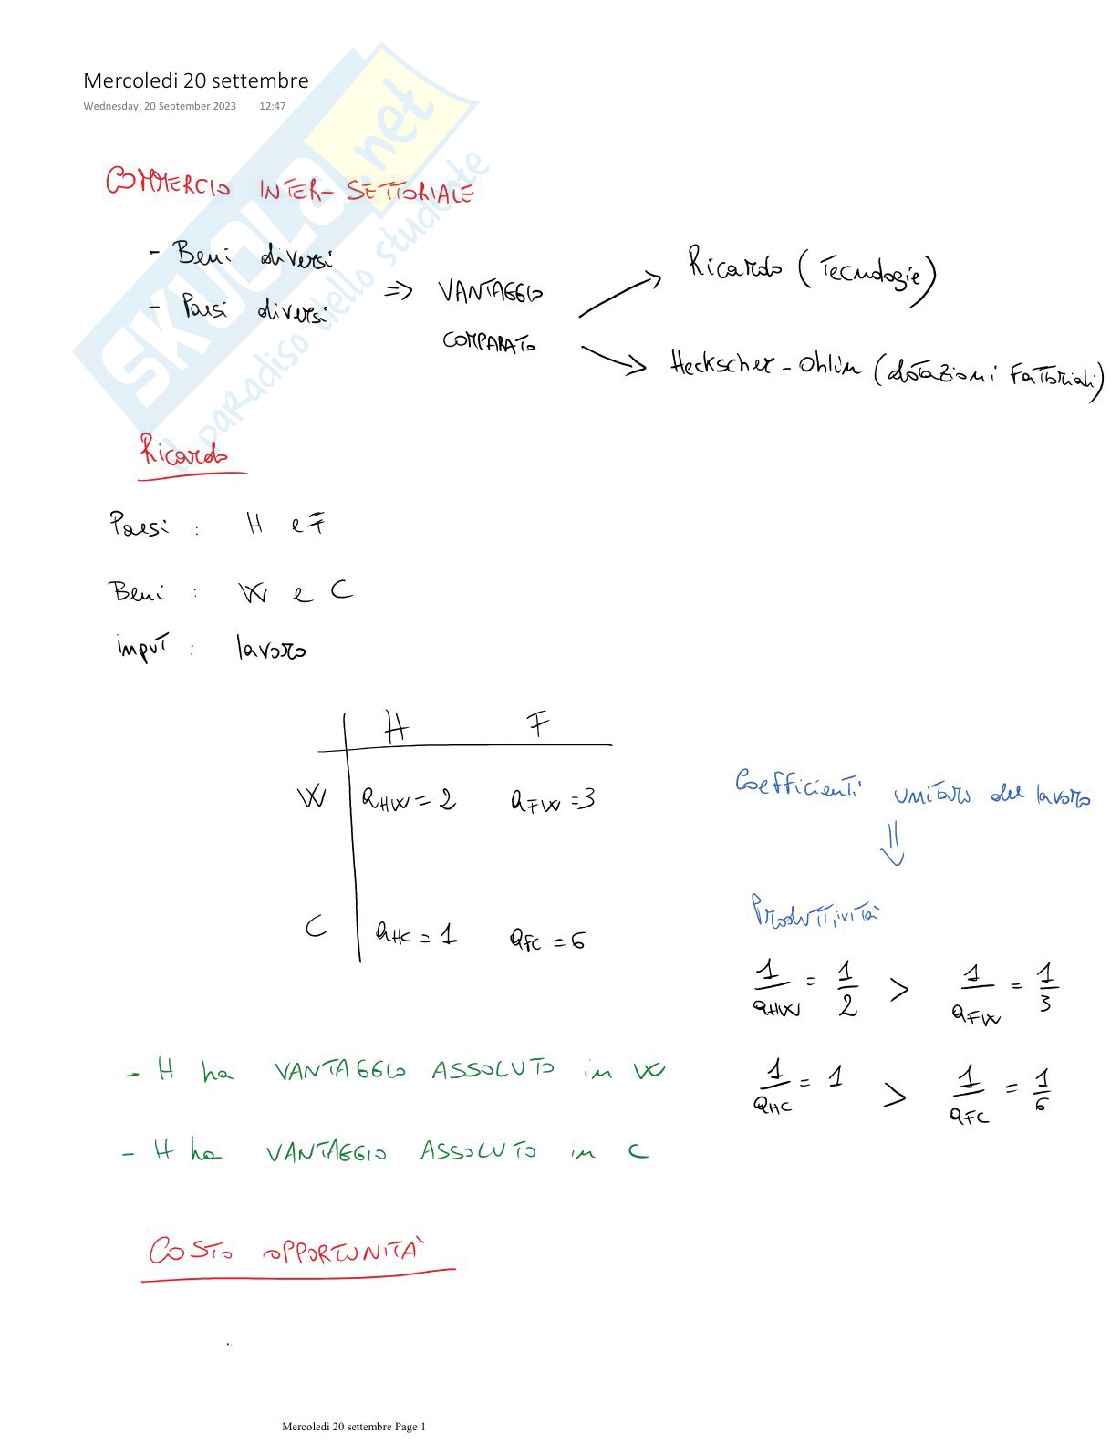 Mercoledì 20 settembre
Wednesday, 20 September 2023 12:47
SKUOLA.net
il paradiso dello studente
COMMERCIO INTER-SETTORIALE
- Beni diversi
- Paesi diversi
=> VANTAGGIO COMPARATO
Ricardo (Tecnologie)
Heckscher-Ohlin (dotazioni Fattoriali)
Ricardo
Paesi : H e F
Beni : W e C
input : lavoro
H F
W aHW = 2 aFW = 3
C aHC = 1 aFC = 6
Coefficienti unitari del lavoro
⇓
Produttività
1/aHW = 1/2 > 1/aFW = 1/3
1/aHC = 1 > 1/aFC = 1/6
- H ha VANTAGGIO ASSOLUTO in W
- H ha VANTAGGIO ASSOLUTO in C
COSTO OPPORTUNITÀ
Mercoledì 20 settembre Page 1